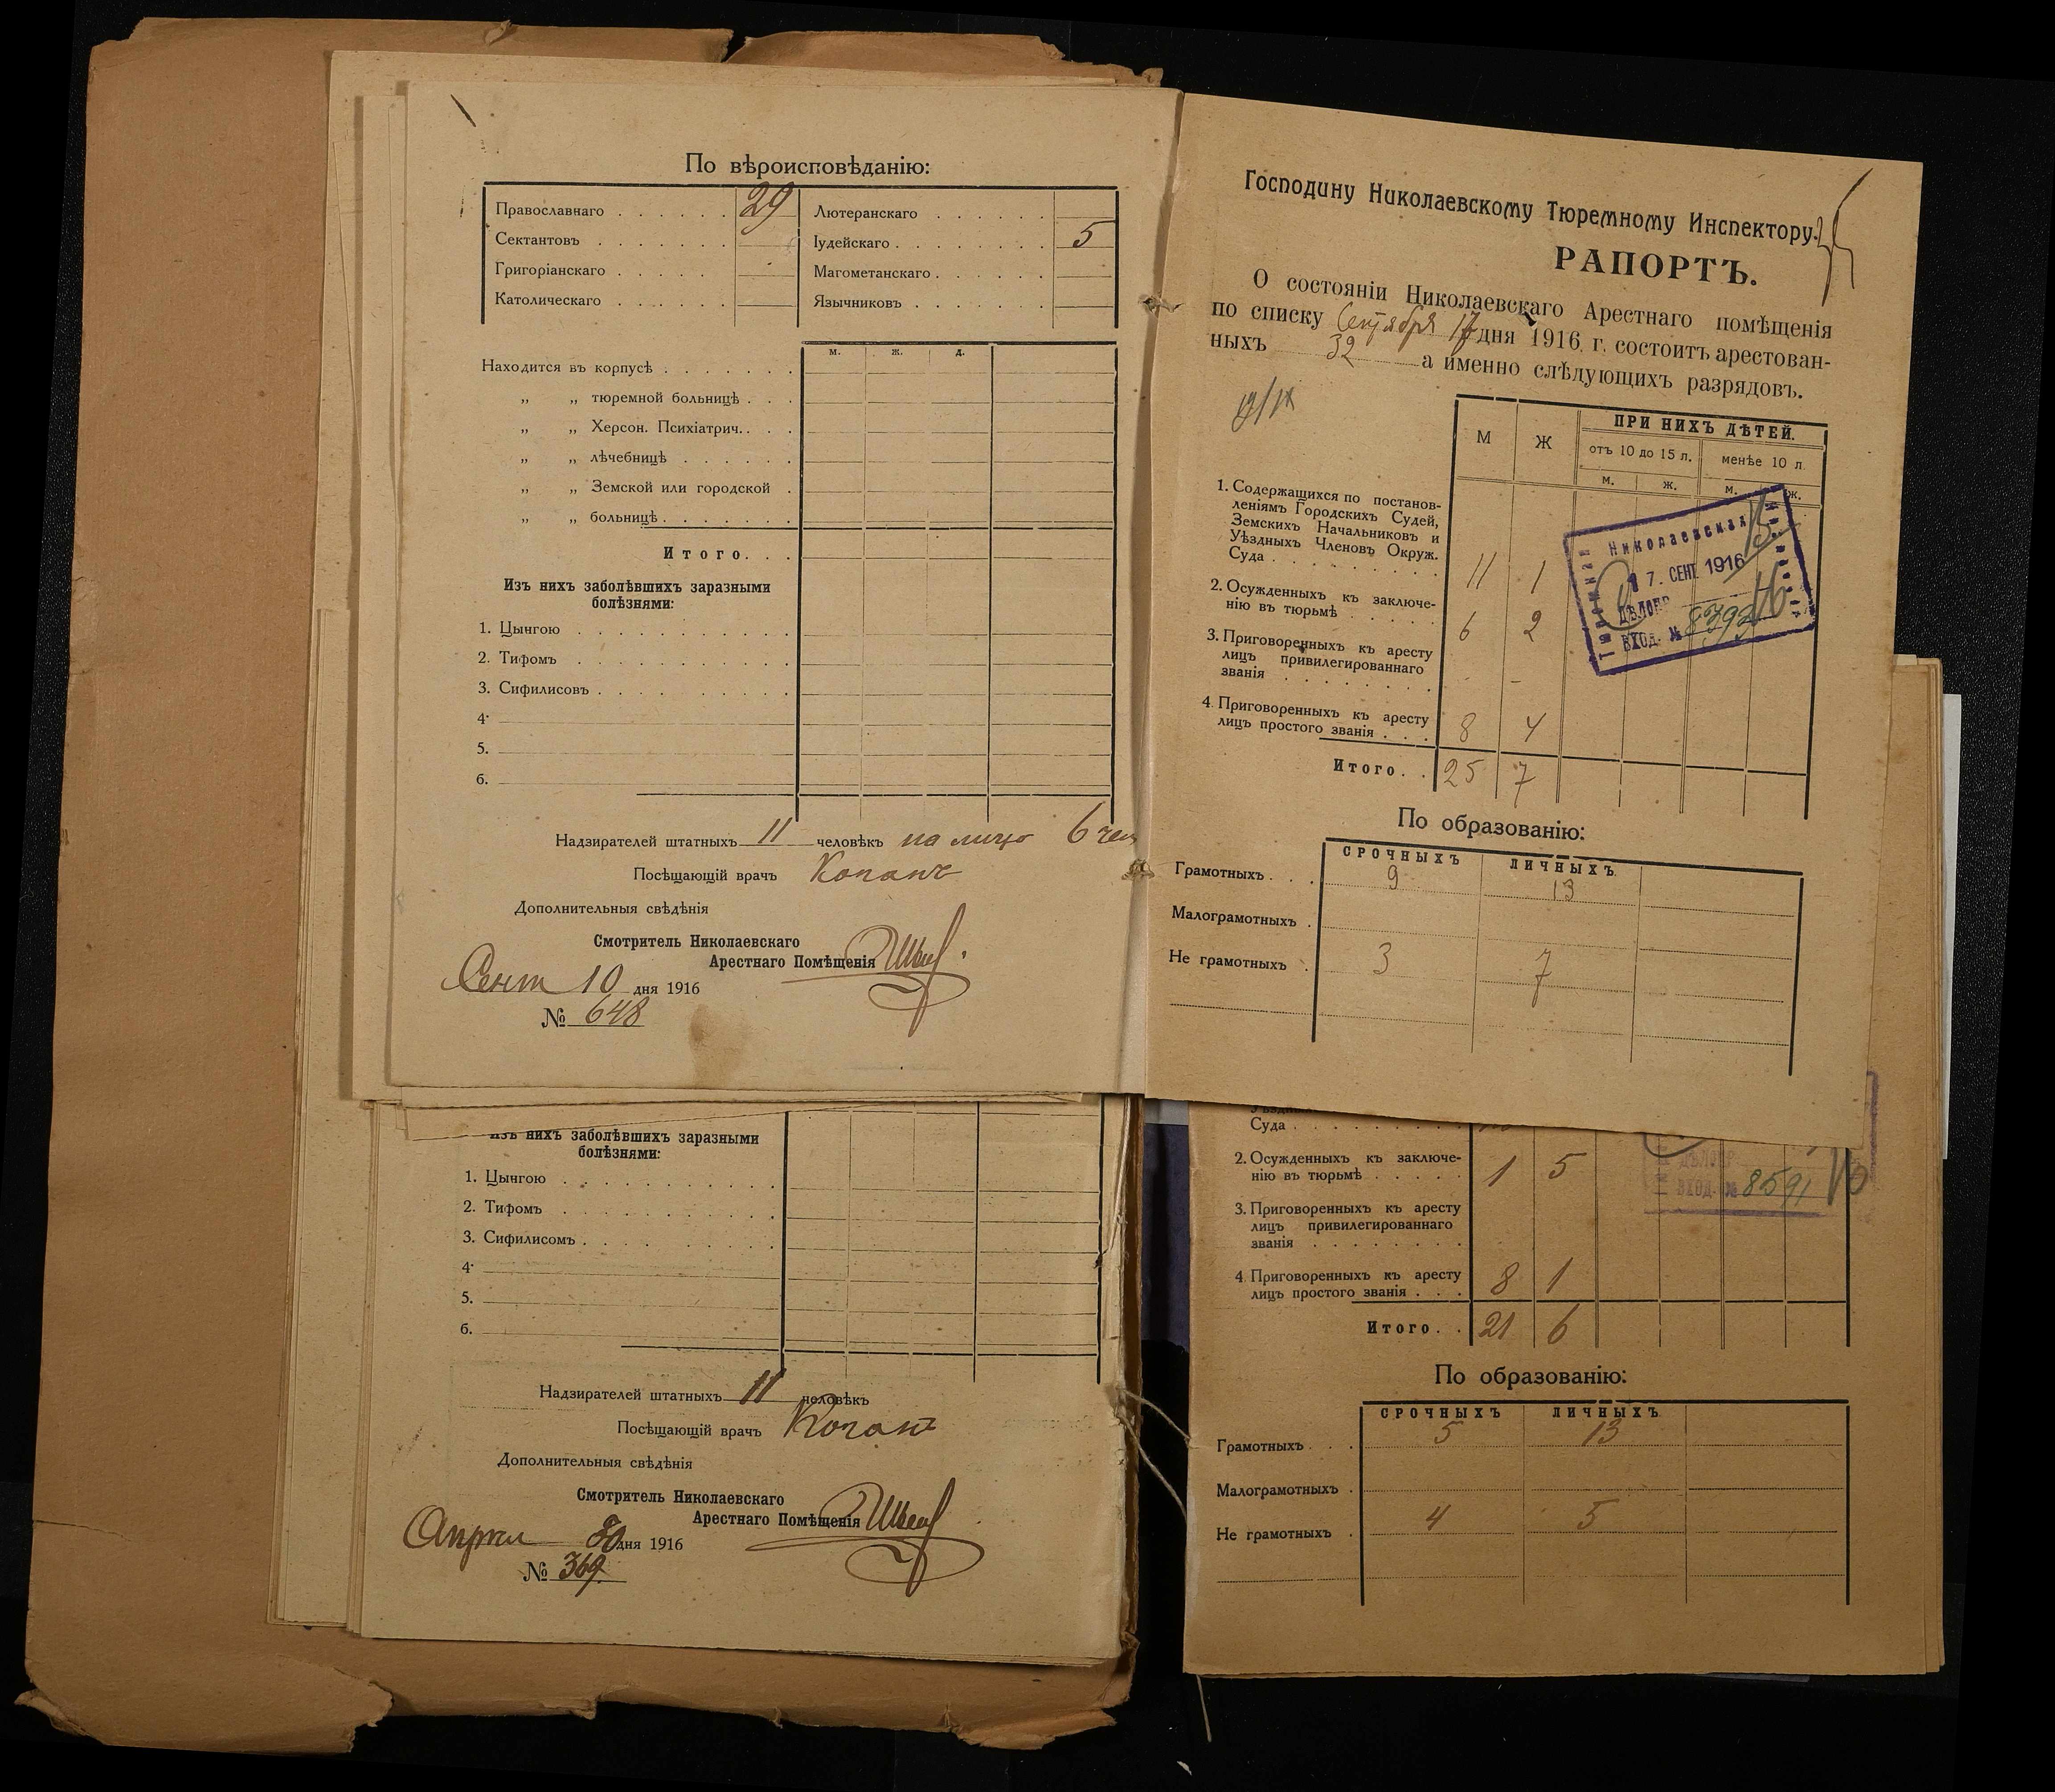 По вѣроисповѣданію:
Православнаго . . . . . . 29 Лютеранскаго . . . . .
Сектантовъ . . . . . . . Іудейскаго . . . . . . . . 5
Григоріанскаго . . . . . Магометанскаго . . . . .
Католическаго . . . . . . Язычниковъ . . . . . . .
м. ж. д.
Находится въ корпусѣ . . . . . . .
„ „ тюремной больницѣ . . .
„ „ Херсон. Психіатрич. . . .
„ „ лѣчебницѣ . . . . . .
„ „ Земской или городской .
„ „ больницѣ . . . . . . .
Итого. . .
Изъ нихъ заболѣвшихъ заразными
болѣзнями:
1. Цынгою . . . . . . . . . . .
2. Тифомъ . . . . . . . . . . .
3. Сифилисовъ . . . . . . . . . .
4.
5.
6.
Надзирателей штатныхъ 11 человѣкъ на лицо 6 чел
Посѣщающій врачъ Коганъ
Дополнительныя свѣдѣнія
Смотритель Николаевскаго
Арестнаго Помѣщенія
Сент 10 дня 1916
№ 648
Изъ нихъ заболѣвшихъ заразными
болѣзнями:
1. Цынгою . . . . . . . . . . .
2. Тифомъ . . . . . . . . . . .
3. Сифилисомъ . . . . . . . . . .
4.
5.
6.
Надзирателей штатныхъ 11 человѣкъ
Посѣщающій врачъ Коганъ
Дополнительныя свѣдѣнія
Смотритель Николаевскаго
Арестнаго Помѣщенія
Апрѣл 30 дня 1916
№ 369
Господину Николаевскому Тюремному Инспектору.
РАПОРТЪ.
О состояніи Николаевскаго Арестнаго помѣщенія
по списку Сентября 17 дня 1916 г. состоитъ арестован-
ныхъ 32 а именно слѣдующихъ разрядовъ.
М Ж ПРИ НИХЪ ДѢТЕЙ.
отъ 10 до 15 л. менѣе 10 л.
м. ж. м. ж.
1. Содержащихся по постанов-
леніямъ Городскихъ Судей,
Земскихъ Начальниковъ и
Уѣздныхъ Членовъ Окруж.
Суда . . . . . . . . . 11 1
2. Осужденныхъ къ заключе-
нію въ тюрьмѣ . . . . . 6 2
3. Приговоренныхъ къ аресту
лицъ привилегированнаго
званія . . . . . . . . - -
4. Приговоренныхъ къ аресту
лицъ простого званія . . . 8 4
Итого. . 25 7
Николаевская
Тюремная
17. СЕНТ. 1916
ДѢЛОПР.
ВХОД. № 8392
По образованію:
СРОЧНЫХЪ ЛИЧНЫХЪ
Грамотныхъ . . . 9 13
Малограмотныхъ .
Не грамотныхъ . 3 7
Суда . . . . . . . . .
2. Осужденныхъ къ заключе-
нію въ тюрьмѣ . . . . . 1 5
3. Приговоренныхъ къ аресту
лицъ привилегированнаго
званія . . . . . . . .
4. Приговоренныхъ къ аресту
лицъ простого званія . . . 8 1
Итого. . 21 6
ДѢЛОПР.
ВХОД. № 8591
По образованію:
СРОЧНЫХЪ ЛИЧНЫХЪ
Грамотныхъ . . . 5 13
Малограмотныхъ .
Не грамотныхъ . 4 5